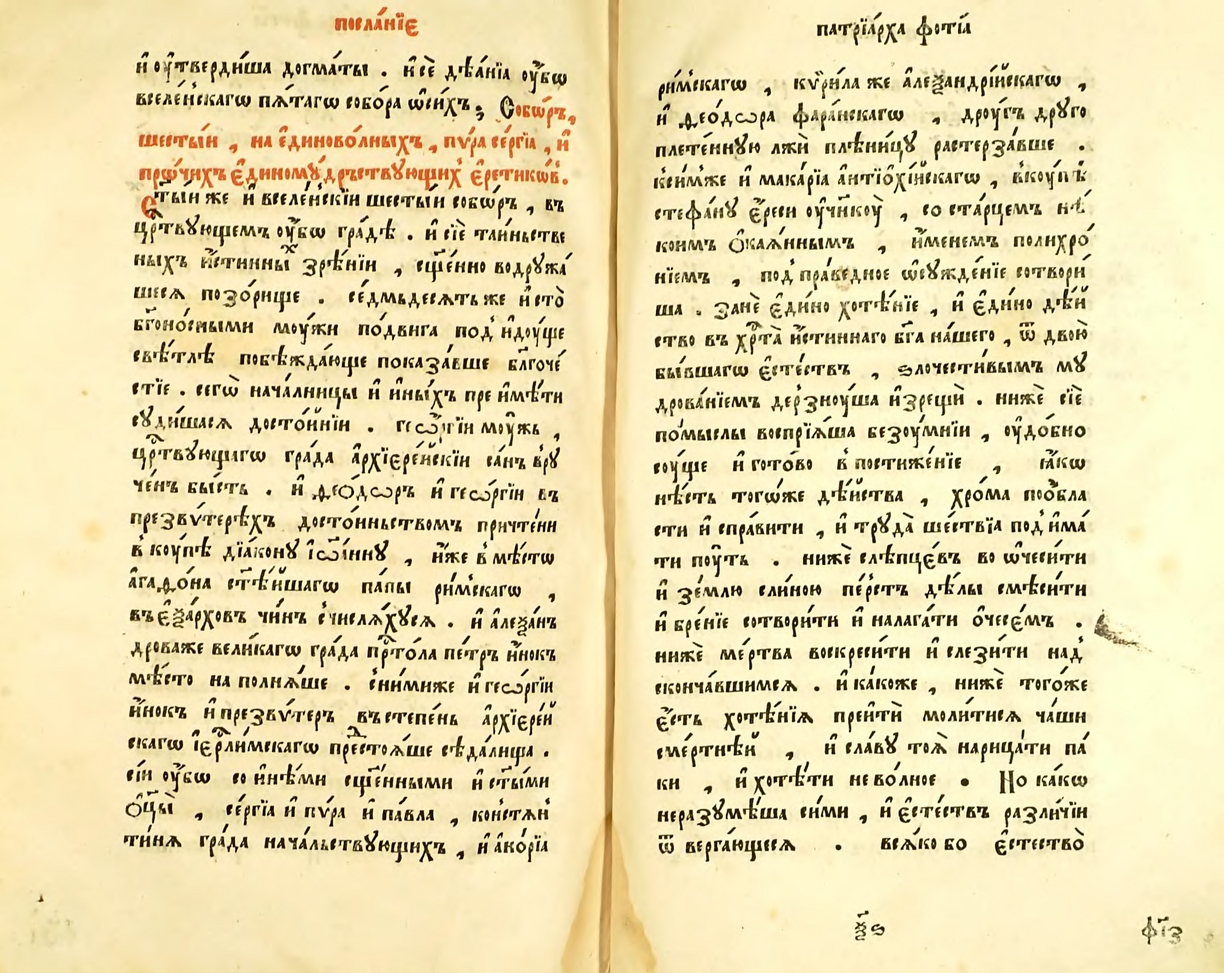 посла́нїе
и҆ ᲂу҆тверди́ша догма́ты . и҆ сѐ дѣѧ́нїѧ ᲂу҆́бѡ
вселе́нскагѡ пѧ́тагѡ собо́ра ѡ҆си́хъ. Собѡ́ръ,
шесты́и , на є҆диново́лныхъ , пѵ́ра се́ргїа , и҆
прѡ́чихъ є҆диномꙋ́дръствꙋющих є҆ретикѡ́в.
Ст҃ы́и же и҆ вселе́нскїи шесты́и собѡ́ръ , въ
црⷭ҇твꙋющемъ ᲂу҆́бѡ гра́дѣ . и҆ сїѐ таи́ньстве
ныхъ и҆́стинныⷯ зрѣ́нїи , сщ҃е́нно водрꙋжа́
шесѧ позо́рище . се́дмьдесѧтъ же и҆ сто̀
бг҃оно́сными моу́жи по́двига под̾идоу́ще
свѣ́тлѣ побѣжда́юще показа́вше бл҃гоче́
стїе . сегѡ̀ нача́лницы и҆ и҆ны́хъ пре и҆мѣ́ти
сꙋди́шасѧ досто́йнїи . геѡ́ргїи моу́жь ,
црⷭ҇твꙋющагѡ гра́да а҆рхїере́йскїи са́нъ врꙋ
че́нъ бы́сть . и҆ ѳео́дѡръ и҆ геѡ́ргїи въ
презвѵ́терѣхъ досто́иньствомъ причте́ни
в̾коу́пѣ дїа́конꙋ і҆ѡа́ннꙋ , и҆́же в̾мѣ́стѡ
а҆гаѳо́на ст҃ѣ́йшагѡ па́пы ри́мскагѡ ,
въ є҆ѯа́рхов чи́нъ с̾числѧ́хꙋсѧ . и҆ а҆леѯа́н
дроваже вели́кагѡ гра́да прⷭ҇то́ла пе́тръ и҆́нокъ
мѣ́сто на полнѧ́ше . с̾ни́миже и҆ геѡ́ргїи
и҆́нокъ и҆ презвѵ́теръ въ степе́нь а҆рхїере́й
скагѡ і҆ерⷭ҇ли́мскагѡ предстоѧ́ше сѣда́лища .
сі́и ᲂу҆́бѡ со и҆нѣ́ми сщ҃е́нными и҆ ст҃ы́ми
ѻ҆ц҃ы̀ , се́ргїа и҆ пѵ́ра и҆ па́вла , констѧн
ти́нѧ гра́да нача́льствꙋющихъ , и҆ а҆но́рїа
патрїа́рха фо́тїа
ри́мскагѡ , кѵ́рила же а҆леѯандрі́йскагѡ ,
и҆ ѳео́дѡра фара́нскагѡ , дроу́гъ дрꙋ́го
плете́ннꙋю лжѝ плѣни́цꙋ растерза́вше .
к̾си́мже и҆ мака́рїа а҆нтїѻхі́йскагѡ , вкоу́пѣ
стефа́нꙋ є҆́реси ᲂу҆чн҃коу̀ , со ста́рцемъ нѣ́
коимъ ѻ҆каѧ́ннымъ , и҆́менемъ полихро́
нїемъ , под̾ пра́ведное ѡ҆сꙋжде́нїе сотвори́
ша . занѐ є҆ди́но хотѣ́нїе , и҆ є҆ди́но дѣ́й
ство въ хрⷭ҇та̀ и҆́стиннаго бг҃а на́шего , ѿ двою̀
бы́вшагѡ є҆сте́ствъ , ѕлочести́вымъ мꙋ
дрова́нїемъ дерзноу́ша и҆зрещѝ . нижѐ сїѐ
по́мыслы воспрїѧ́ша безоу́мнїи , ᲂу҆до́бно
соу́ще и҆ гото́во в̾ постиже́нїе , ꙗ҆́кѡ
нѣ́сть тогѡ́же дѣ́йства , хро́ма поѻбла
сти и҆ спра́вити , и҆ трꙋда̀ ше́ствїа под̾има́
ти поу́ть . нижѐ слѣпце́въ во ѡ҆чеси́ти
и҆ зе́млю сли́ною пе́рстъ дѣ́лы смѣси́ти
и҆ бре́нїе сотвори́ти и҆ налага́ти ѻ҆чесе́мъ .
нижѐ ме́ртва воскреси́ти и҆ слези́ти над̾
сконча́вшимсѧ . и҆ ка́коже , нижѐ того́же
є҆́сть хотѣ́нїѧ прейтѝ моли́тисѧ ча́ши
сме́ртнѣй , и҆ сла́вꙋ тоѧ̀ нарица́ти па́
ки , и҆ хотѣ́ти нево́лное . Но ка́кѡ
неразꙋмѣ́ша си́ми , и҆ є҆сте́ствъ разли́чїи
ѿ верга́ющесѧ . всѧ́ко бо є҆стество̀
ѯ҃ѕ
фг҃і